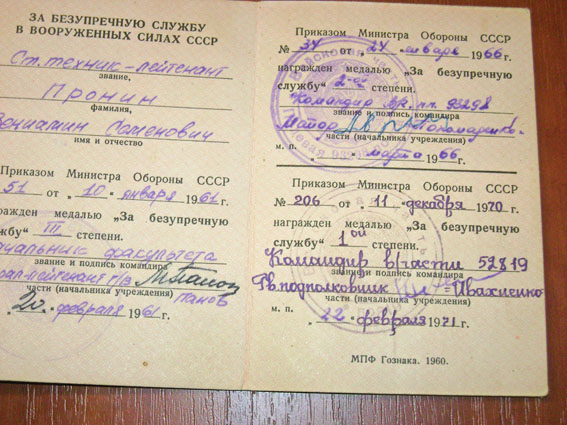 ЗА БЕЗУПРЕЧНУЮ СЛУЖБУ
В ВООРУЖЕННЫХ СИЛАХ СССР
Ст. техник-лейтенант
звание,
Пронин
фамилия,
Вениамин Семенович
имя и отчество
Приказом Министра Обороны СССР
51 от "10" января 1961 г.
награжден медалью „За безупречную
службу" III степени.
Начальник факультета
звание и подпись командира
Панов
части (начальника учреждения)
„20" февраля 1961 г.
Приказом Министра Обороны СССР
№ 34 от „24" января 1966 г.
награжден медалью „За безупречную
службу" 2-ой степени.
Командир в/ч п.п. 93298
звание и подпись командира
Майор Пономаренко
части (начальника учреждения)
м. п. марта 1966 г.
Приказом Министра Обороны СССР
№ 206 от „11" декабря 1970 г.
награжден медалью „За безупречную
службу" 1ой степени.
Командир в/части 57819
звание и подпись командира
Гв. подполковник Ивахненко
части (начальника учреждения)
м. п. „22" февраля 1971 г.
МПФ Гознака. 1960.